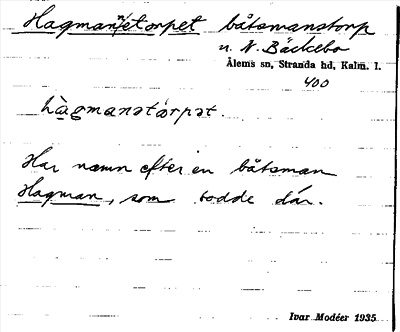 Hagman(n)etorpet båtsmanstorp
u. N. Bäckebo
Ålems sn, Stranda hd, Kalm. l.
400
hàgmanətårpət.
Har namn efter en båtsman
Hagman, som bodde där.
Ivar Modéer 1935